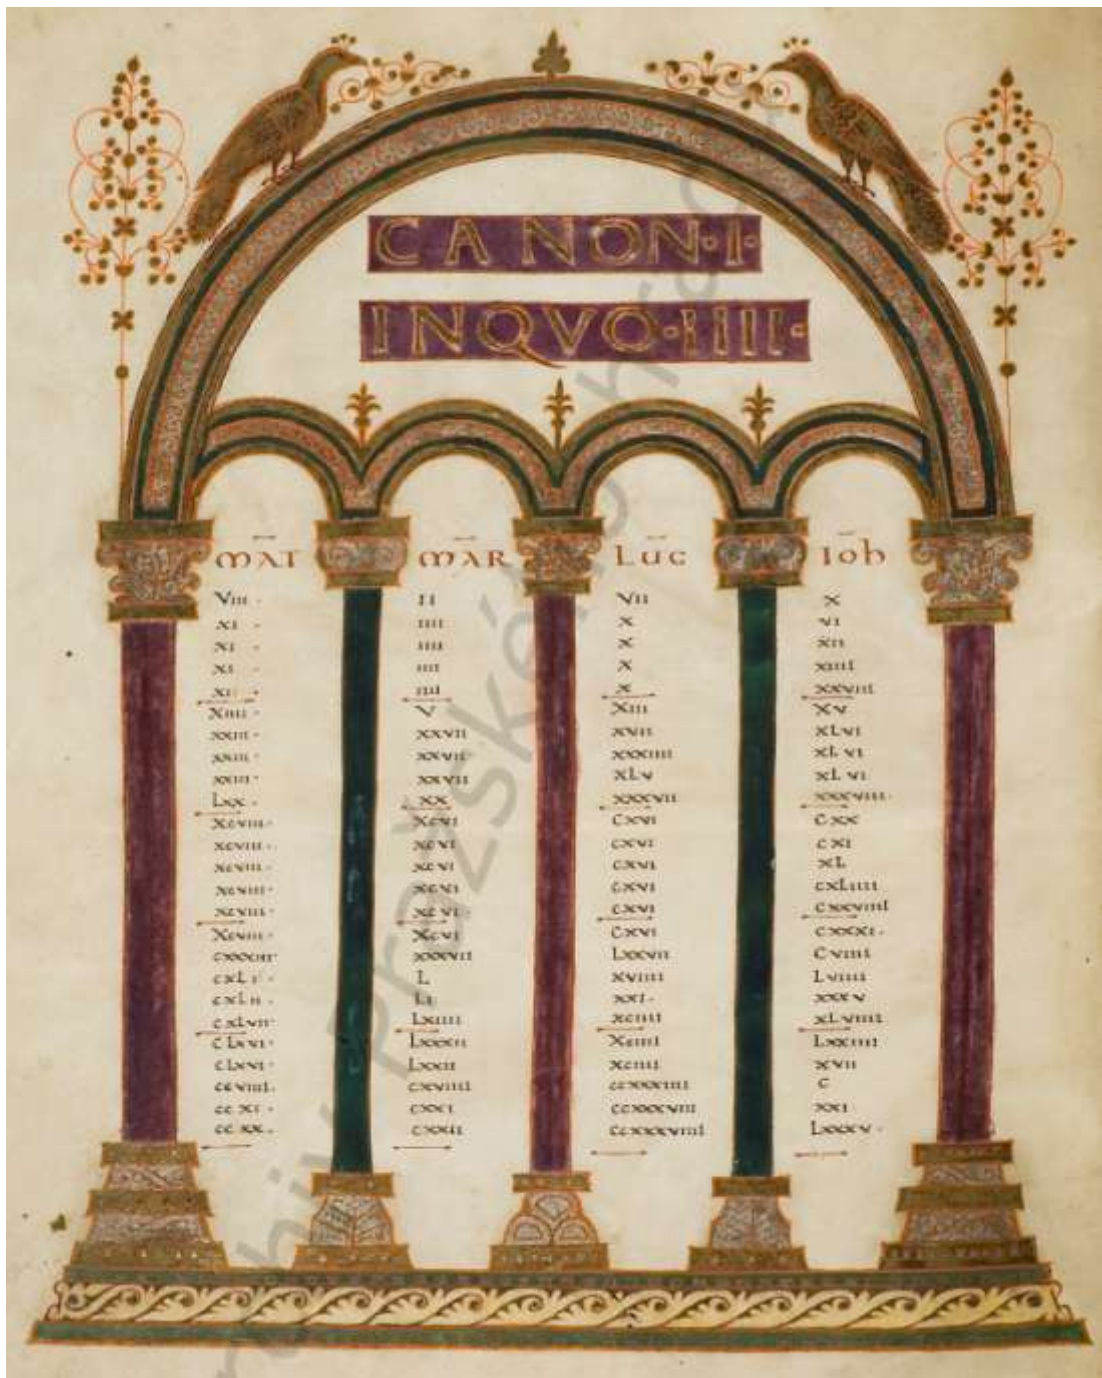 CANON·I·
INQVO·IIII·
MAT MAR LUC IOH
VIII · II VII X
XI · IIII X VI
XI · IIII X XII
XI · IIII X XIIII
XI · IIII X XXVIII
XIIII · V XIII XV
XXIII · XXVII XVII XLVI
XXIII · XXVII XXXIIII XLVI
XXIII · XXVII XLV XLVI
LXX · XX XXXVII XXXVIII·
XCVIII · XCVI CXVI CXX
XCVIII · XCVI CXVI CXI
XCVIII · XCVI CXVI XL
XCVIII · XCVI CXVI CXLIIII
XCVIII · XCVI CXVI CXXVIIII
XCVIII · XCVI CXVI CXXXI·
CXXXIII· XXXVII LXXVII CVIIII
CXLI · L XVIIII LVIIII
CXLII · LI XXI· XXXV
CXLVII· LXIIII XCIIII XLVIIII
CLXVI · LXXXII XCIIII LXXIIII
CLXVI · LXXII XCIIII XVII
CCVIIII· CXVIIII CCXXXIIII C
CCXI · CXXI CCXXXVIII XXI·
CCXX · CXXII CCXXXVIIII LXXXV·
pražského